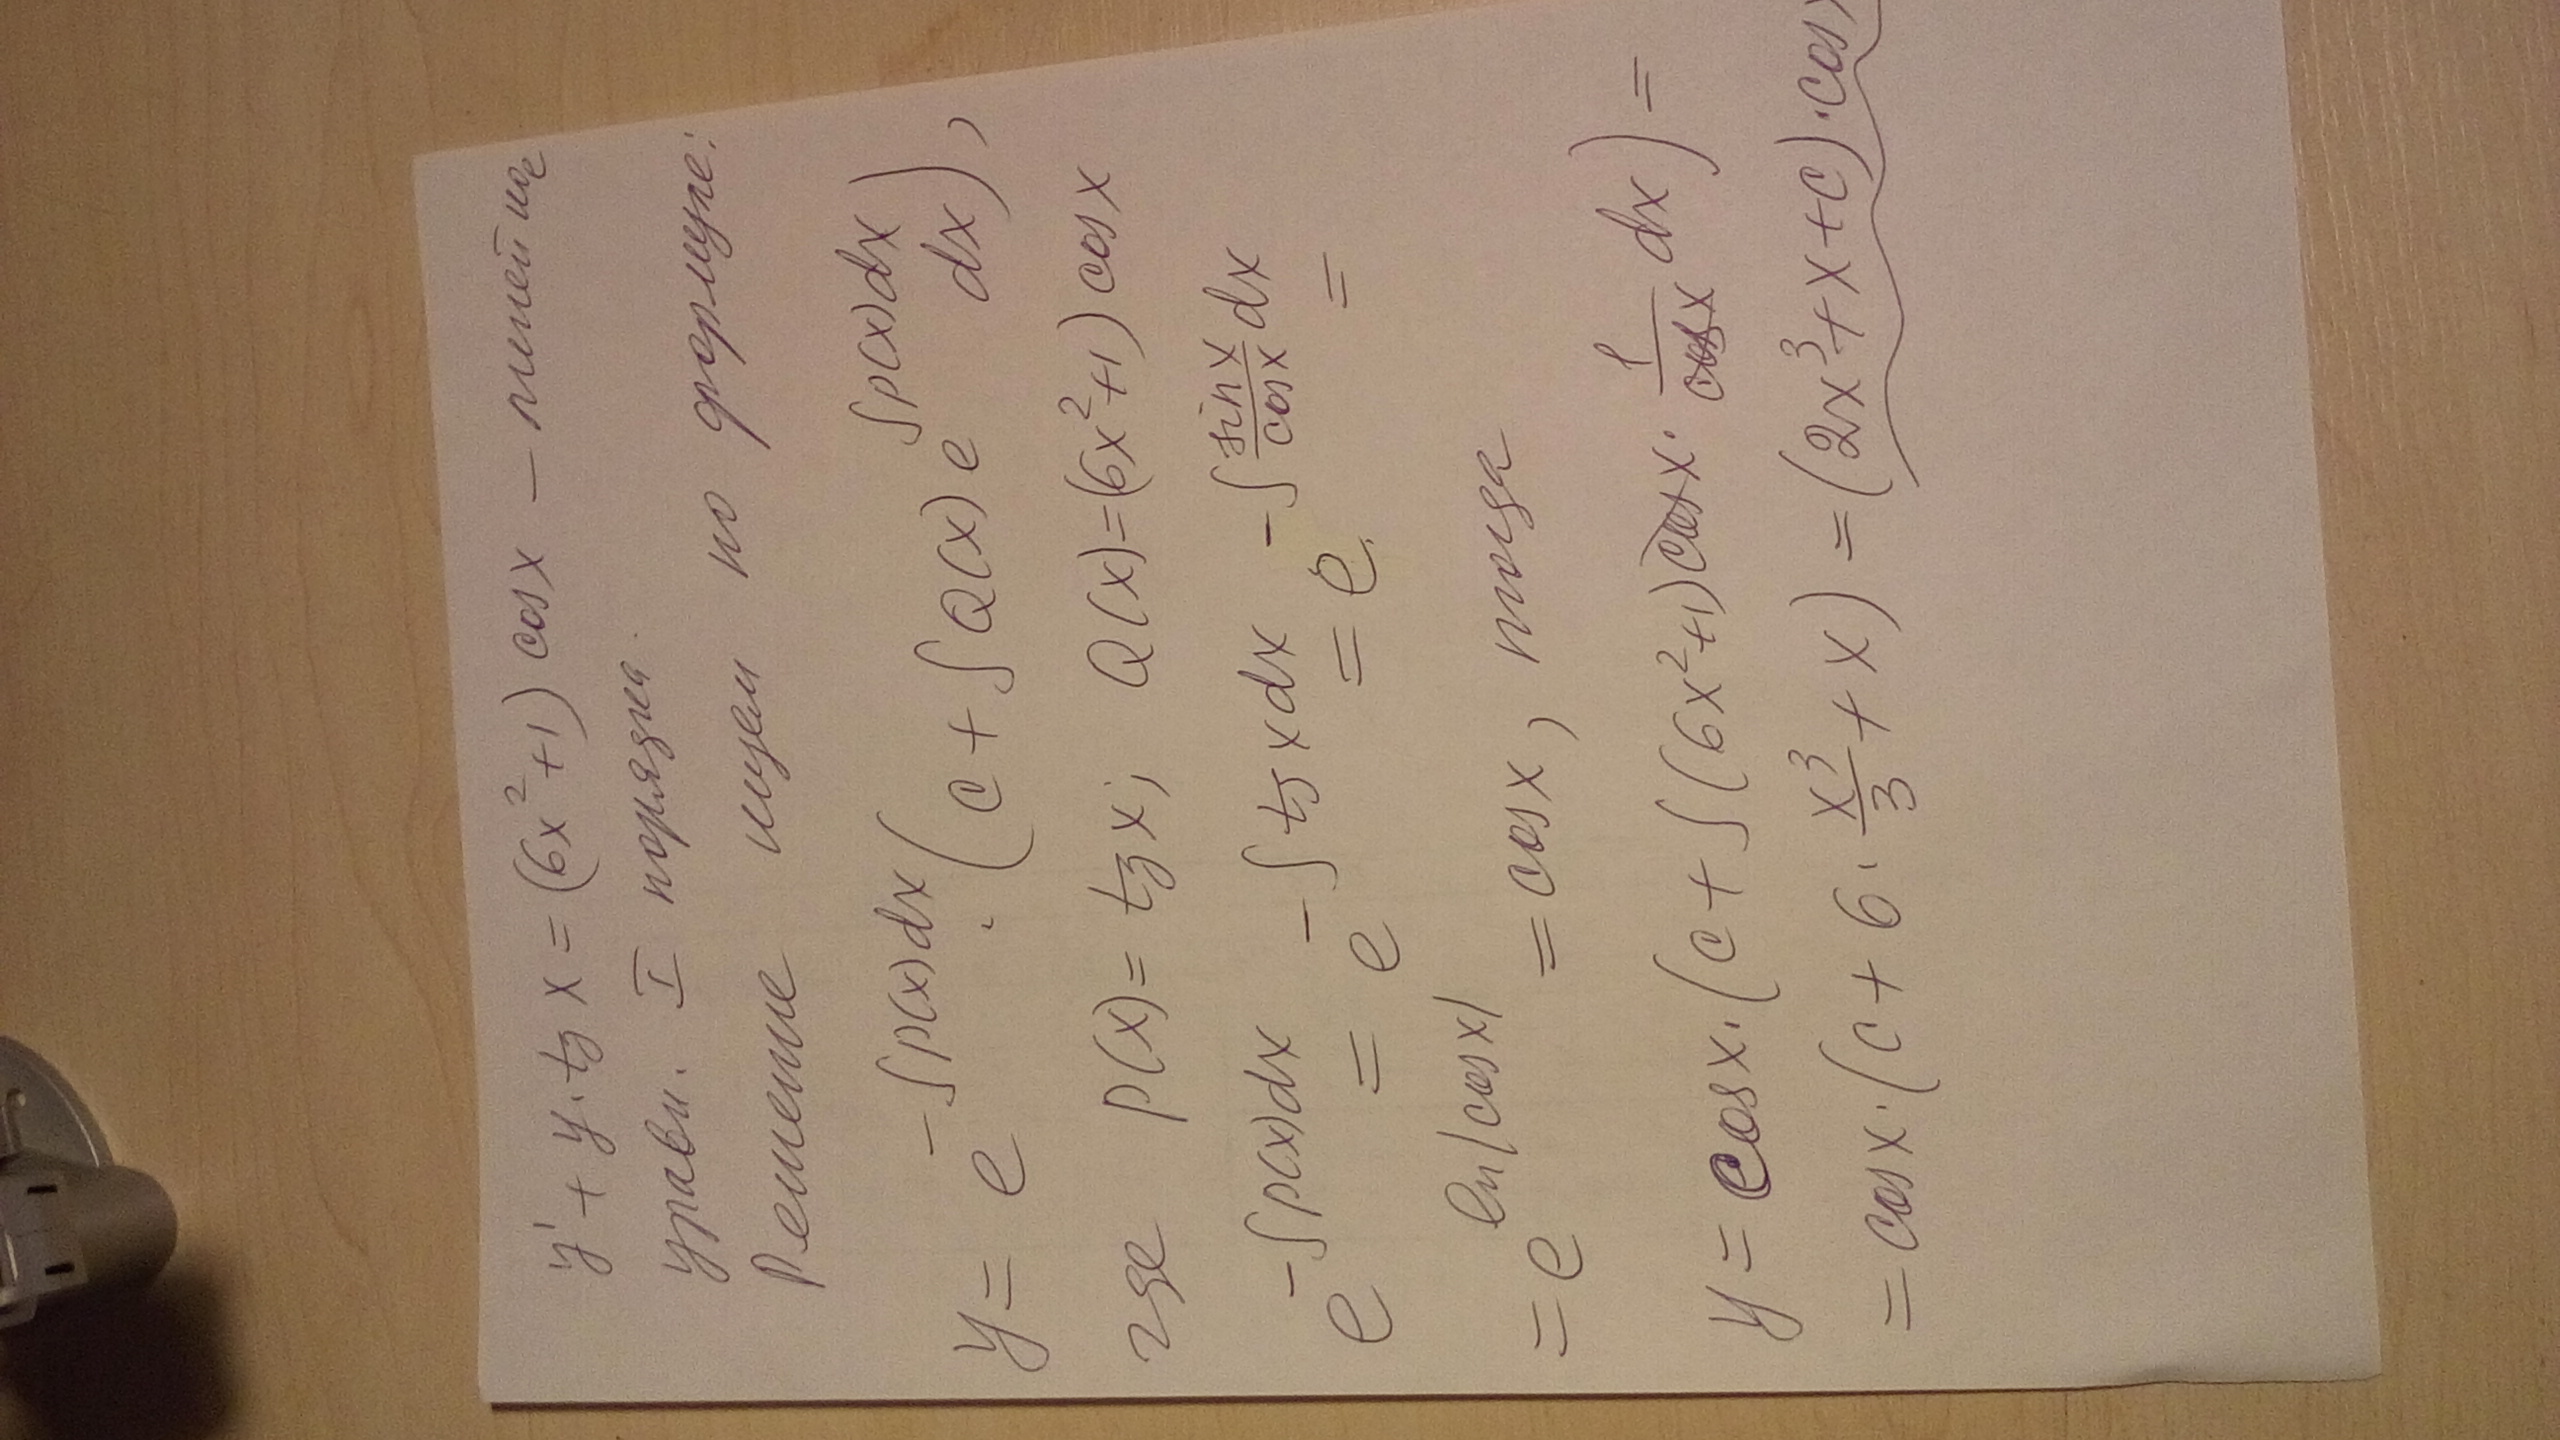 y' + y · tg x = (6x² + 1) cos x – линейное
уравн. I порядка.
Решение ищем по формуле:
y = e^(-∫p(x)dx) · (c + ∫Q(x) e^(∫p(x)dx) dx),
где p(x) = tg x; Q(x) = (6x² + 1) cos x
e^(-∫p(x)dx) = e^(-∫tg x dx) = e^(-∫(sin x/cos x) dx) =
= e^(ln|cos x|) = cos x, тогда
y = cos x · (c + ∫(6x² + 1) cos x · 1/cos x dx) =
= cos x · (c + 6 · x³/3 + x) = (2x³ + x + c) · cos x